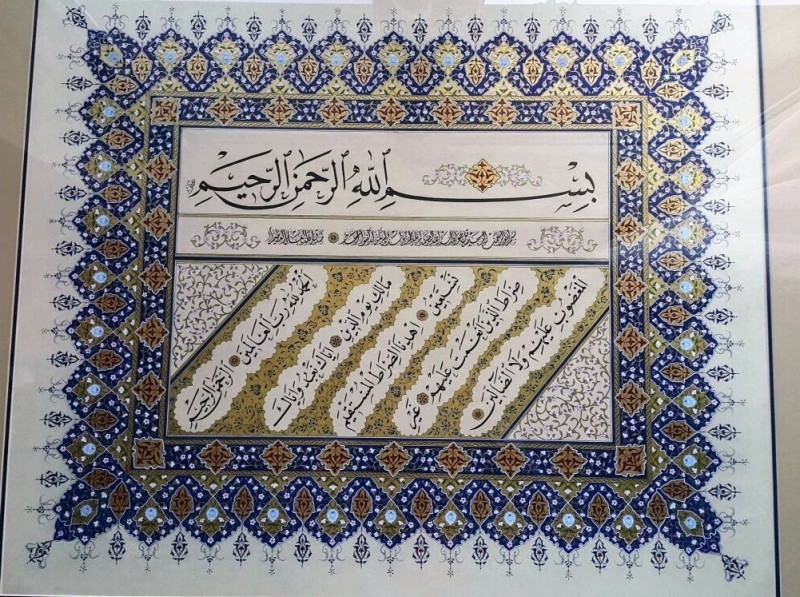 بِسْمِ اللهِ الرَّحْمٰنِ الرَّحِيمِ
الحمد لله رب العالمين الرحمن الرحيم
مالك يوم الدين اياك نعبد واياك
نستعين اهدنا الصراط المستقيم
صراط الذين انعمت عليهم غير
المغضوب عليهم ولا الضالين